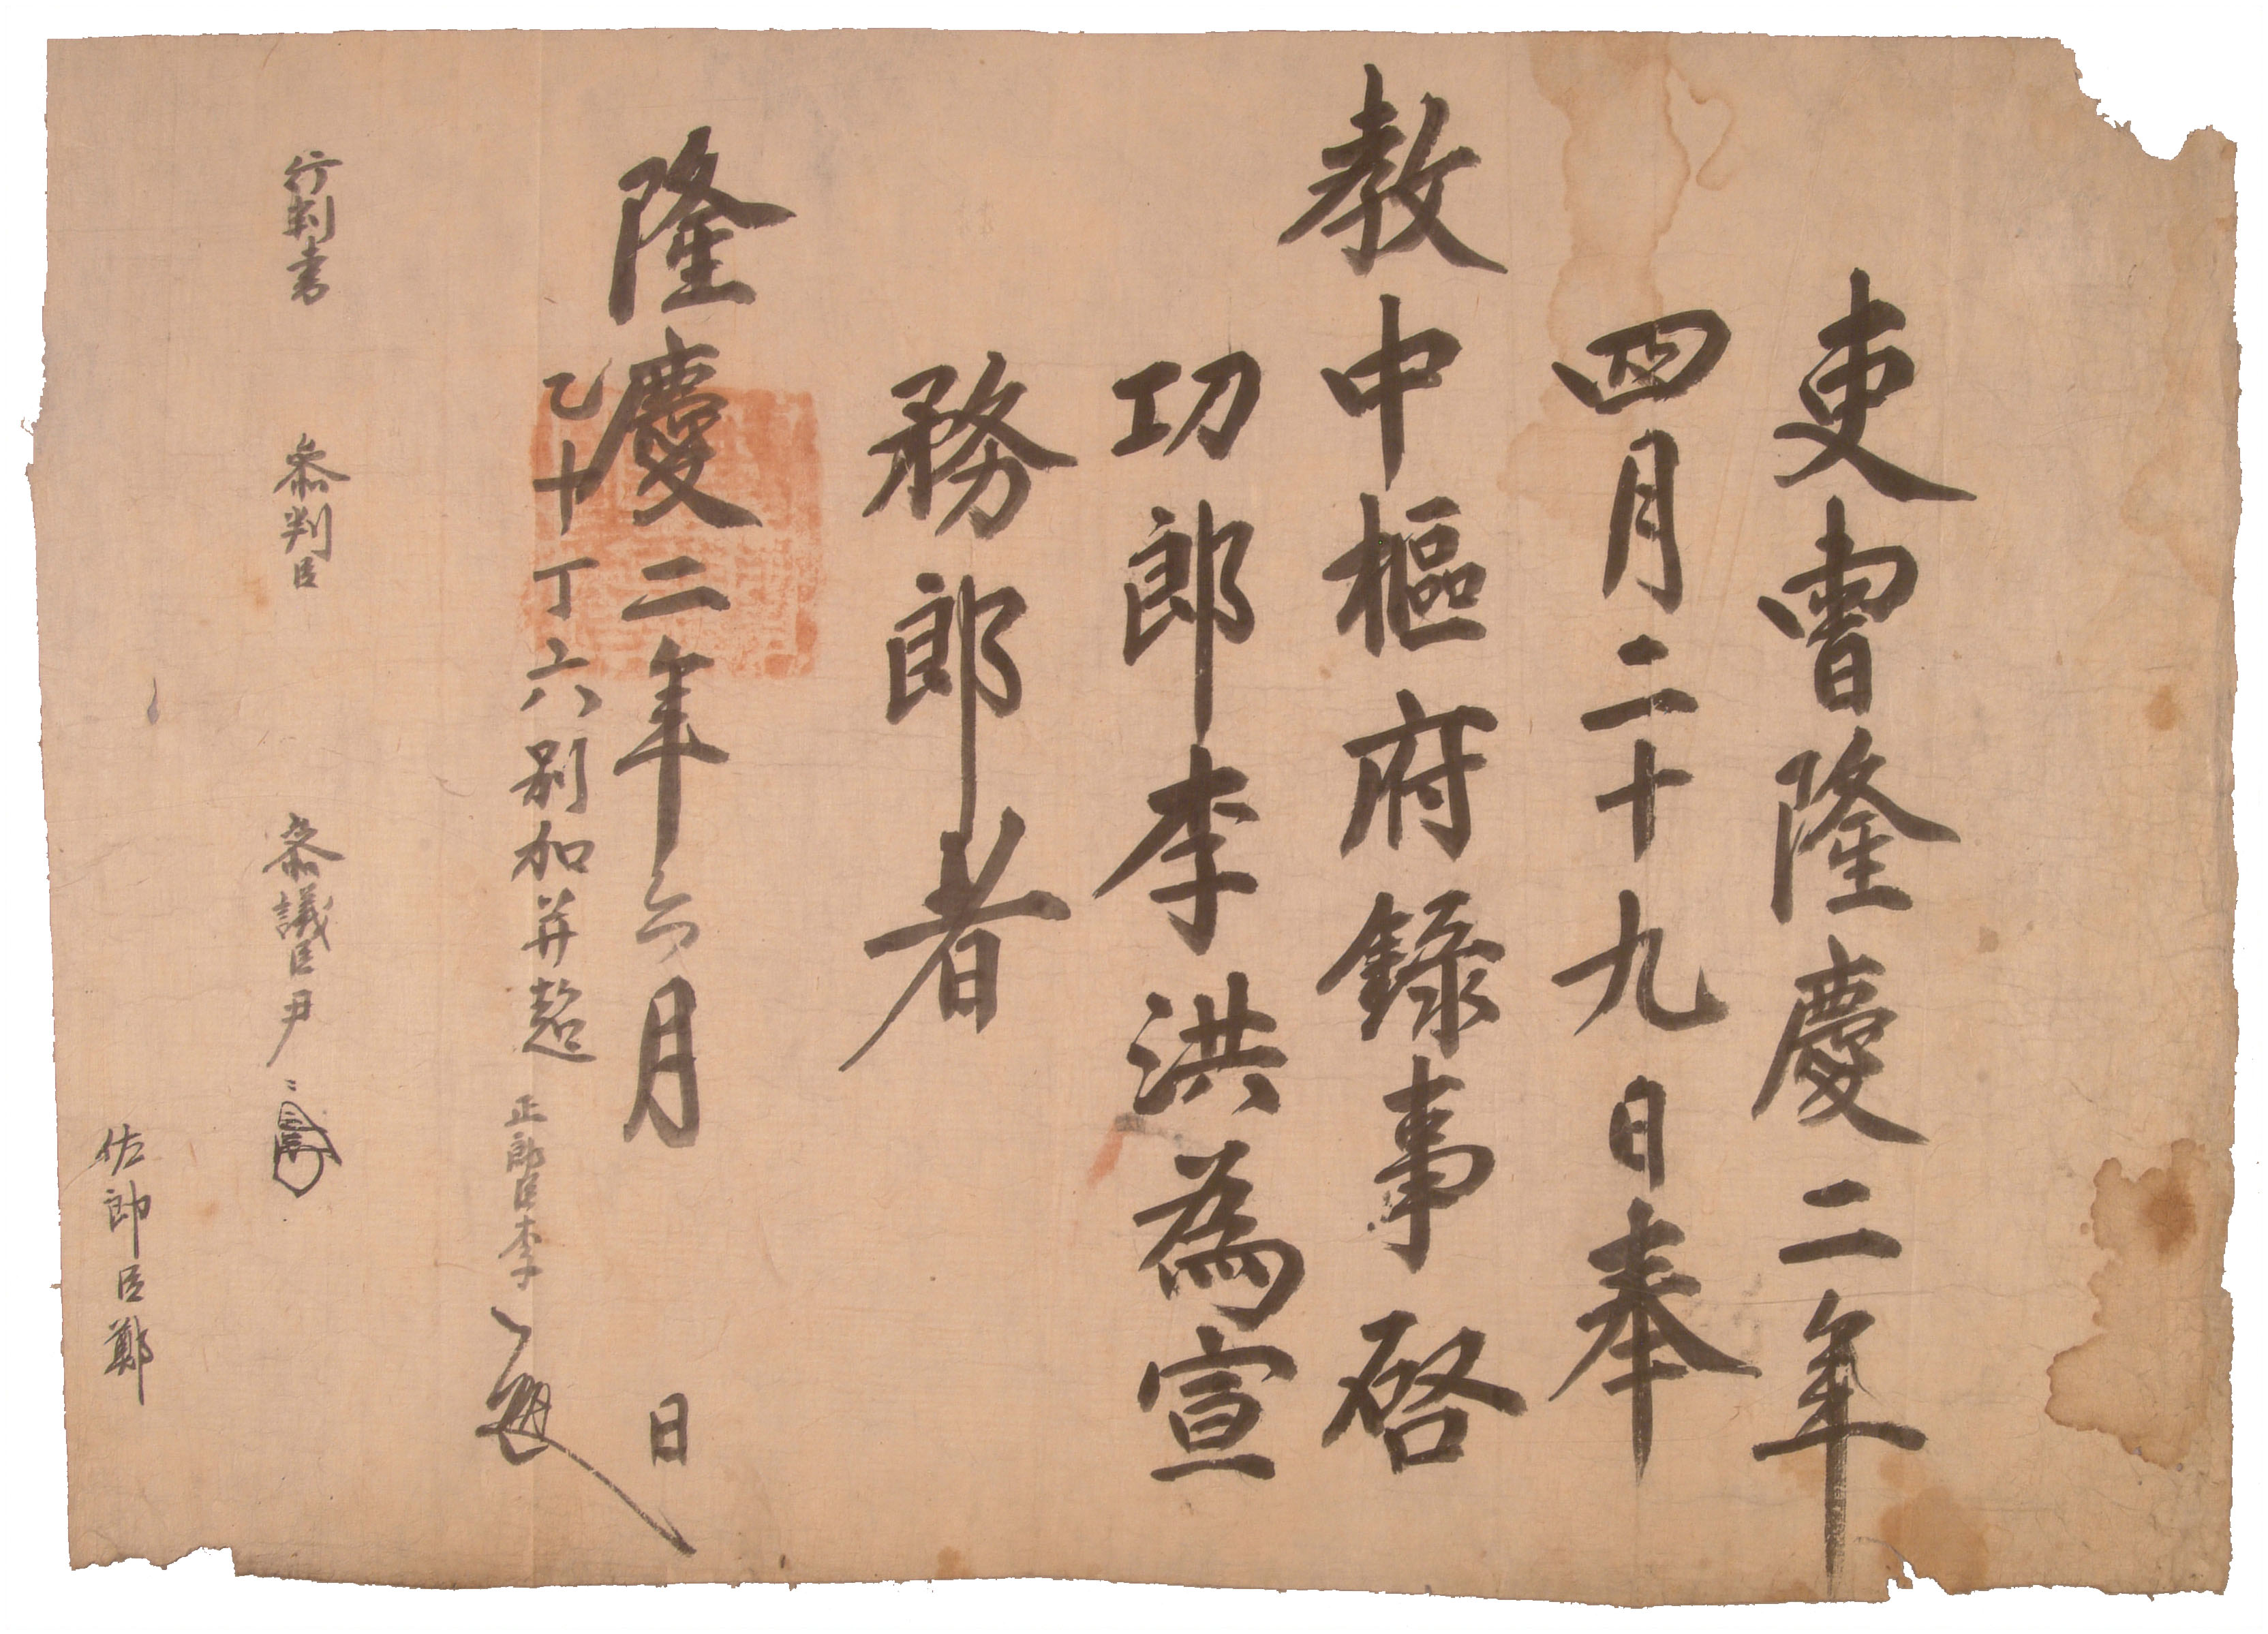 吏曺隆慶二年
四月二十九日奉
教中樞府錄事啓
功郎李洪為宣
務郎者
隆慶二年六月 日
乙十丁六別加并超 正郎臣李
行判書 叅判臣 叅議臣尹
佐郎臣鄭